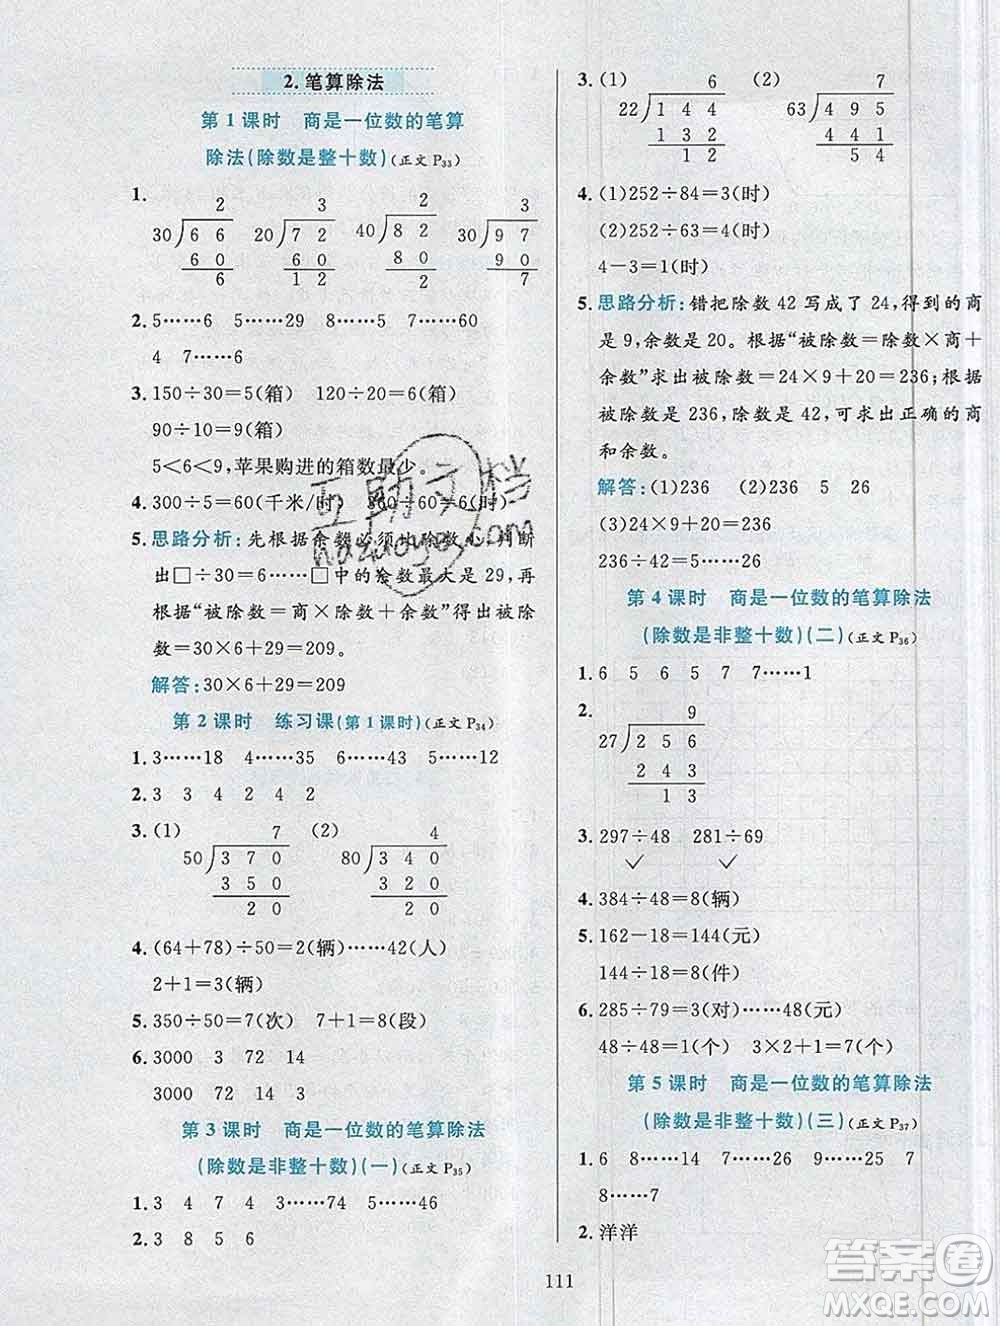 2. 笔算除法
第 1 课时　商是一位数的笔算
除法(除数是整十数)(正文 P33)
1.
2　3　2　3
30)6 6　20)7 2　40)8 2　30)9 7
6 0　6 0　8 0　9 0
6　1 2　2　7
2. 5……6　5……29　8……8　7……60
4　7……6
3. 150÷30=5(箱)　120÷20=6(箱)
90÷10=9(箱)
5<6<9,苹果购进的箱数最少。
4. 300÷5=60(千米/时)　360÷60=6(时)
5. 思路分析:先根据余数必须比除数小,判断
出□÷30=6……□中的余数最大是 29,再
根据“被除数=商×除数+余数”得出被除
数=30×6+29=209。
解答:30×6+29=209
第 2 课时　练习课(第 1 课时)(正文 P34)
1. 3……18　4……35　6……43　5……12
2. 3　3　4　2　4　2
3. (1)　7　(2)　4
50)3 7 0　80)3 4 0
3 5 0　3 2 0
2 0　2 0
4. (64+78)÷50=2(辆)……42(人)
2+1=3(辆)
5. 350÷50=7(次)　7+1=8(段)
6. 3000　3　72　14
3000　72　14　3
第 3 课时　商是一位数的笔算除法
(除数是非整十数)(一)(正文 P35)
1. 3　4　7　4　3……74　5……46
2. 3　8　5　6
3. (1)　6　(2)　7
22)1 4 4　63)4 9 5
1 3 2　4 4 1
1 2　5 4
4. (1)252÷84=3(时)
(2)252÷63=4(时)
4-3=1(时)
5. 思路分析:错把除数 42 写成了 24,得到的商
是 9,余数是 20。根据“被除数=除数×商+
余数”求出被除数=24×9+20=236;根据
被除数是 236,除数是 42,可求出正确的商
和余数。
解答:(1)236　(2)236　5　26
(3)24×9+20=236
236÷42=5……26
第 4 课时　商是一位数的笔算除法
(除数是非整十数)(二)(正文 P36)
1. 6　5　6　5　7　7……1
2.　9
27)2 5 6
2 4 3
1 3
3. 297÷48　281÷69
✓　✓
4. 384÷48=8(辆)
5. 162-18=144(元)
144÷18=8(件)
6. 285÷79=3(对)……48(元)
48÷48=1(个)　3×2+1=7(个)
第 5 课时　商是一位数的笔算除法
(除数是非整十数)(三)(正文 P37)
1. 6　8……14　7……27　9……25　7
8……7
2. 洋洋
111
互助文档
hazuoya.com
答案圈
MXQE.COM